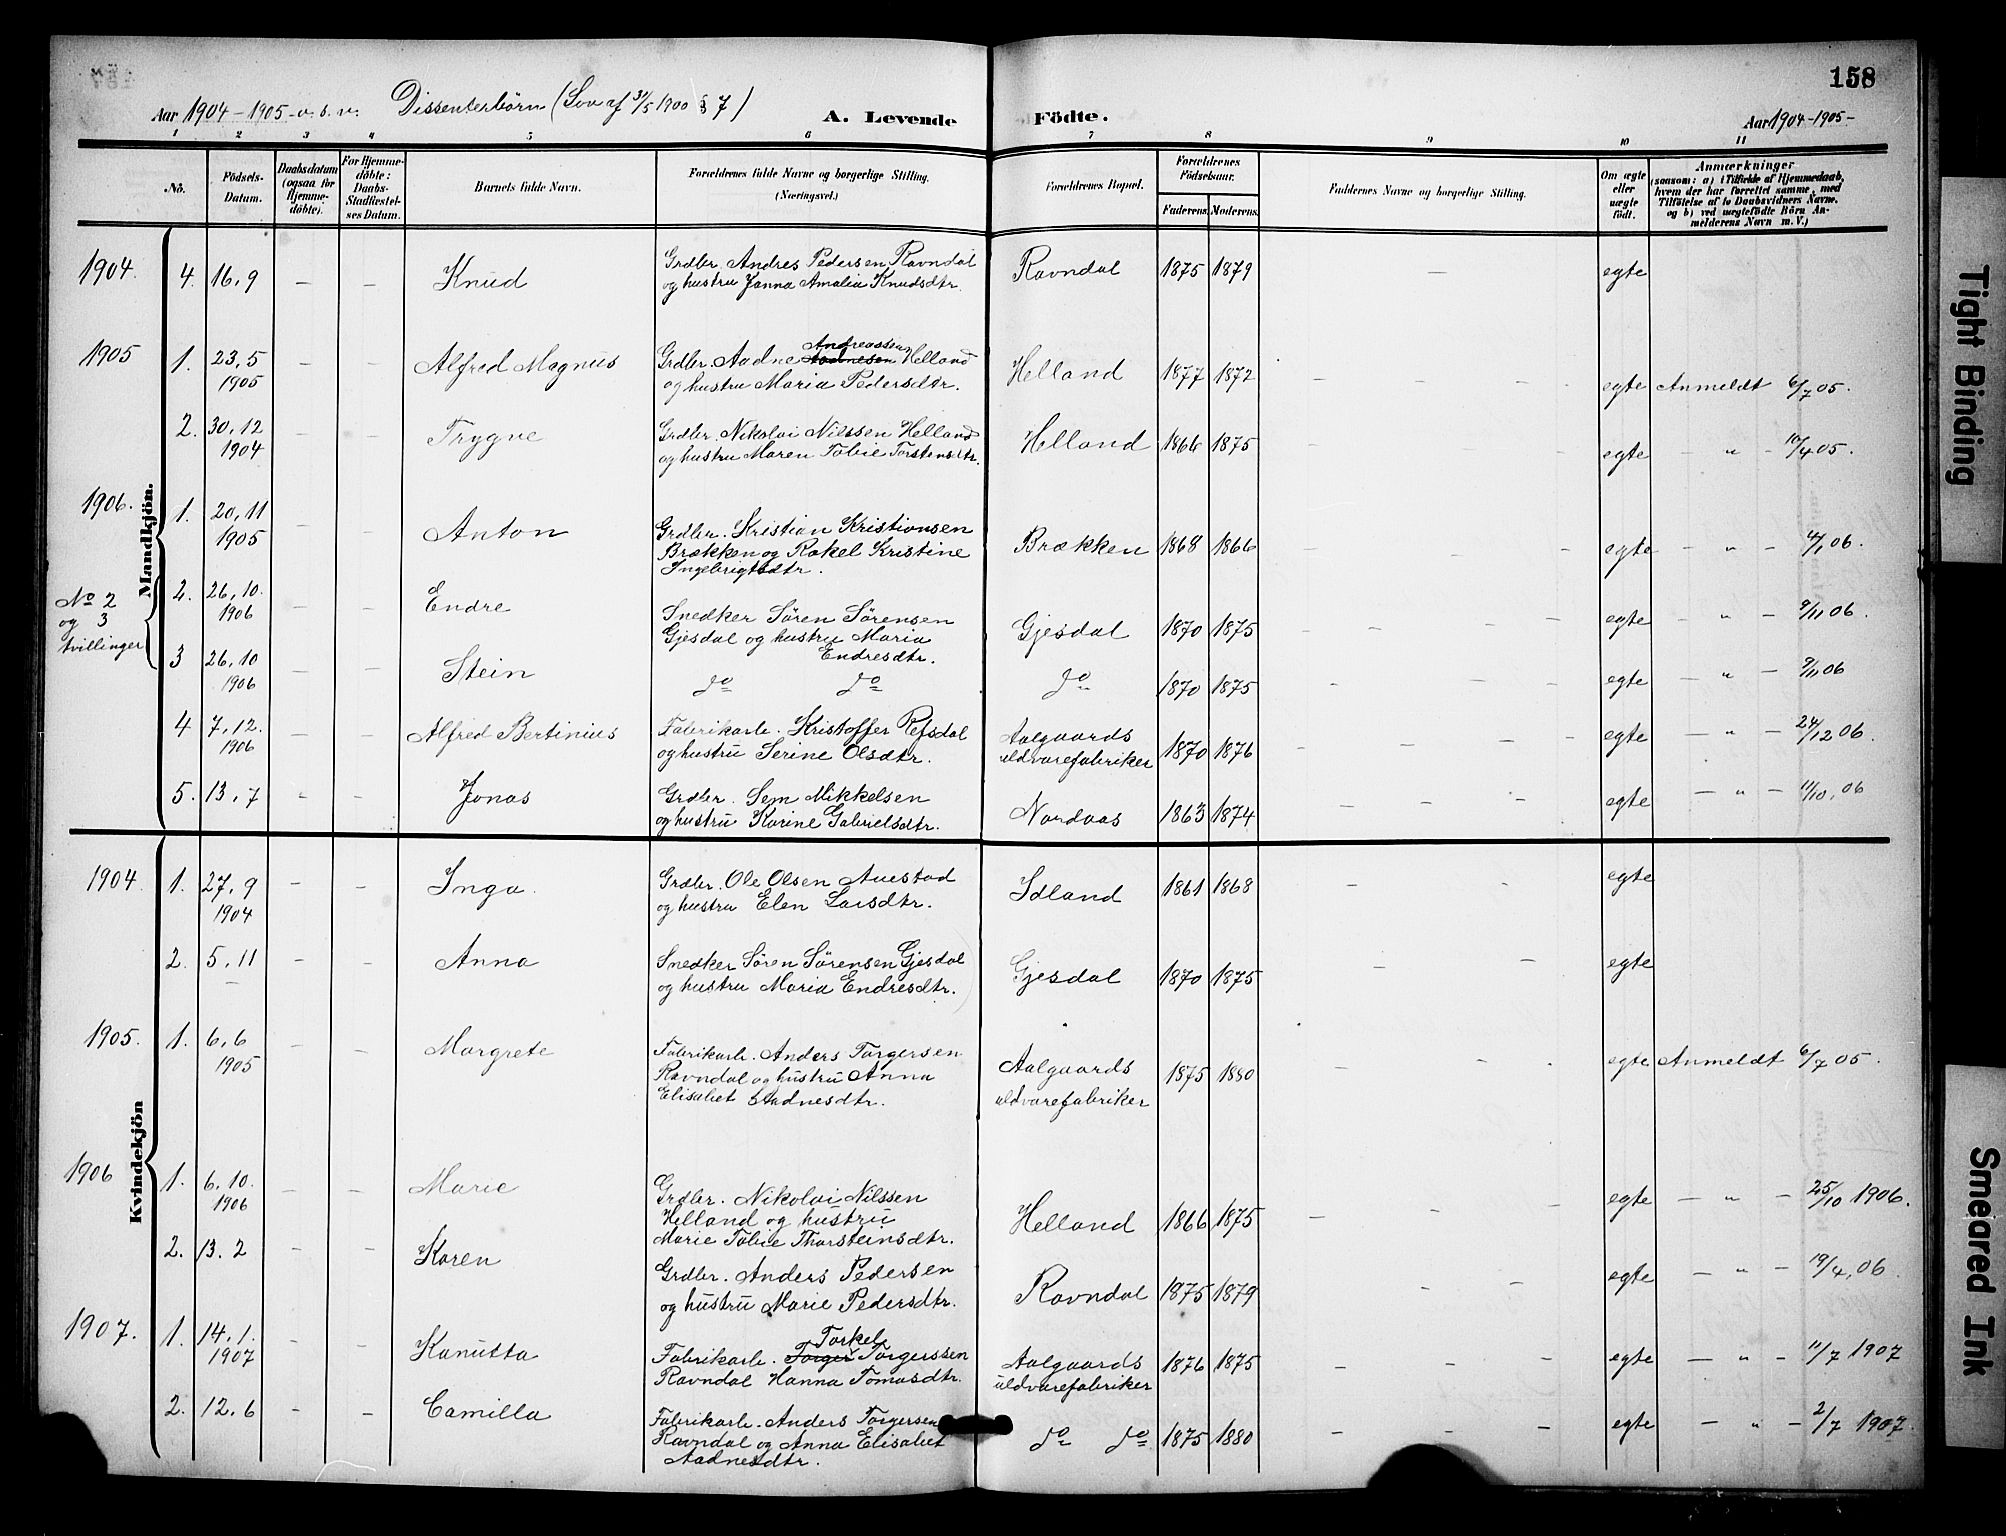 158
Aar 1904-1905-o.s.v. Dissenterbörn (Lov af 31/5 1900 § 7) A. Levende Födte. Aar 1904-1905-
1 2 3 4 5 6 7 8 9 10 11
No. Födsels-Datum. Daabsdatum (ogsaa for Hjemme-döbte). For Hjemme-döbte: Daabs-Stadfæstel-ses Datum. Barnets fulde Navn. Forældrenes fulde Navne og borgerlige Stilling. (Næringsvei.) Forældrenes Bopæl. Forældrenes Födselsaar. Faderens. Moderens. Faddernes Navne og borgerlige Stilling. Om ægte eller uægte födt. Anmærkninger (saasom: a) i Tilfælde af Hjemmedaab, hvem der har forrettet samme, med Tilföielse af to Daabsvidners Navne, og b) ved uægtefödte Börn An-melderens Navn m. V.)
Mandkjön.
1904. 4. 16.9 - - Knud Grdbr. Andres Pedersen Ravndal Ravndal 1875 1879 - egte
og hustru Janna Amalia Knudsdtr.
1905 1. 23,5 1905 - - Alfred Magnus Grdbr. Aadne Aadnesen Andreassen Helland Helland 1877 1872 - - - egte Anmeldt 6/7 05.
og hustru Maria Pedersdtr.
2. 30,12 1904 - - Trygve Grdbr. Nikolai Nilssen Helland Helland 1866 1875 - - - egte - " - 10/4 05.
og hustru Maren Tobie Torstensdtr.
1906. 1. 20,11 1905 - - Anton Grdbr. Kristian Kristiansen Brækken 1868 1866 - - - egte - " - 4/1 06.
Brækken og Rakel Kristine
Ingebrigtsdtr.
No 2 og 3 tvillinger
2. 26,10. 1906 - - Endre Snedker Sören Sörensen Gjesdal 1870 1875 - - - egte - " - 9/11 06.
Gjesdal og hustru Maria
Endresdtr.
3 26,10 1906 - - Stein do do do 1870 1875 - - - egte - " - 9/11 06
4 7,12. 1906 - - Alfred Bertinius Fabrikarb. Kristoffer Refsdal Aalgaards uldvarefabriker 1870 1876 - - - egte - " - 24/12 06.
og hustru Serine Olsdtr.
5. 13,7 - - Jonas Grdbr. Sem Mikkelsen Nordaas 1863 1874 - - - egte - " - 11/10, 06
og hustru Karine Gabrielsdtr.
Kvindekjön
1904. 1. 27,9 1904 - - Inga. Grdbr. Ole Olsen Auestad Idland 1861 1868 - - egte
og hustru Elen Larsdtr.
2. 5,11 - - Anna Snedker Sören Sörensen Gjesdal Gjesdal 1870 1875 - - egte
og hustru Maria Endresdtr.
1905. 1. 6,6 1905 - - Margrete Fabrikarb. Anders Torgersen Aalgaards uldvarefabriker 1875 1880 - - egte Anmeldt 6/7 05.
Ravndal og hustru Anna
Elisabet Aadnesdtr.
1906 1. 6,10. 1906 - - Marie Grdbr. Nikolai Nilssen Helland 1866 1875 - - - egte - " - 25/10 1906.
Helland og hustru
Marie Tobie Thorsteinsdtr.
2. 13.2 - - Karen Grdbr. Anders Pedersen Ravndal 1875 1879 - - - egte - " - 19/4, 06.
og hustru Marie Pedersdtr.
1907. 1. 14,1. 1907 - - Kanutta Fabrikarb. Torger Torkel Torgerssen Aalgaards uldvarefabriker 1876 1875 - - - egte - " - 11/7 1907
Ravndal Hanna Tomasdtr.
2. 12.6 - - Camilla Fabrikarb. Anders Torgersen do do 1875 1880 - - - egte - " - 2/7 1907.
Ravndal og Anna Elisabet
Aadnesdtr.
Tight Binding
Smeared Ink